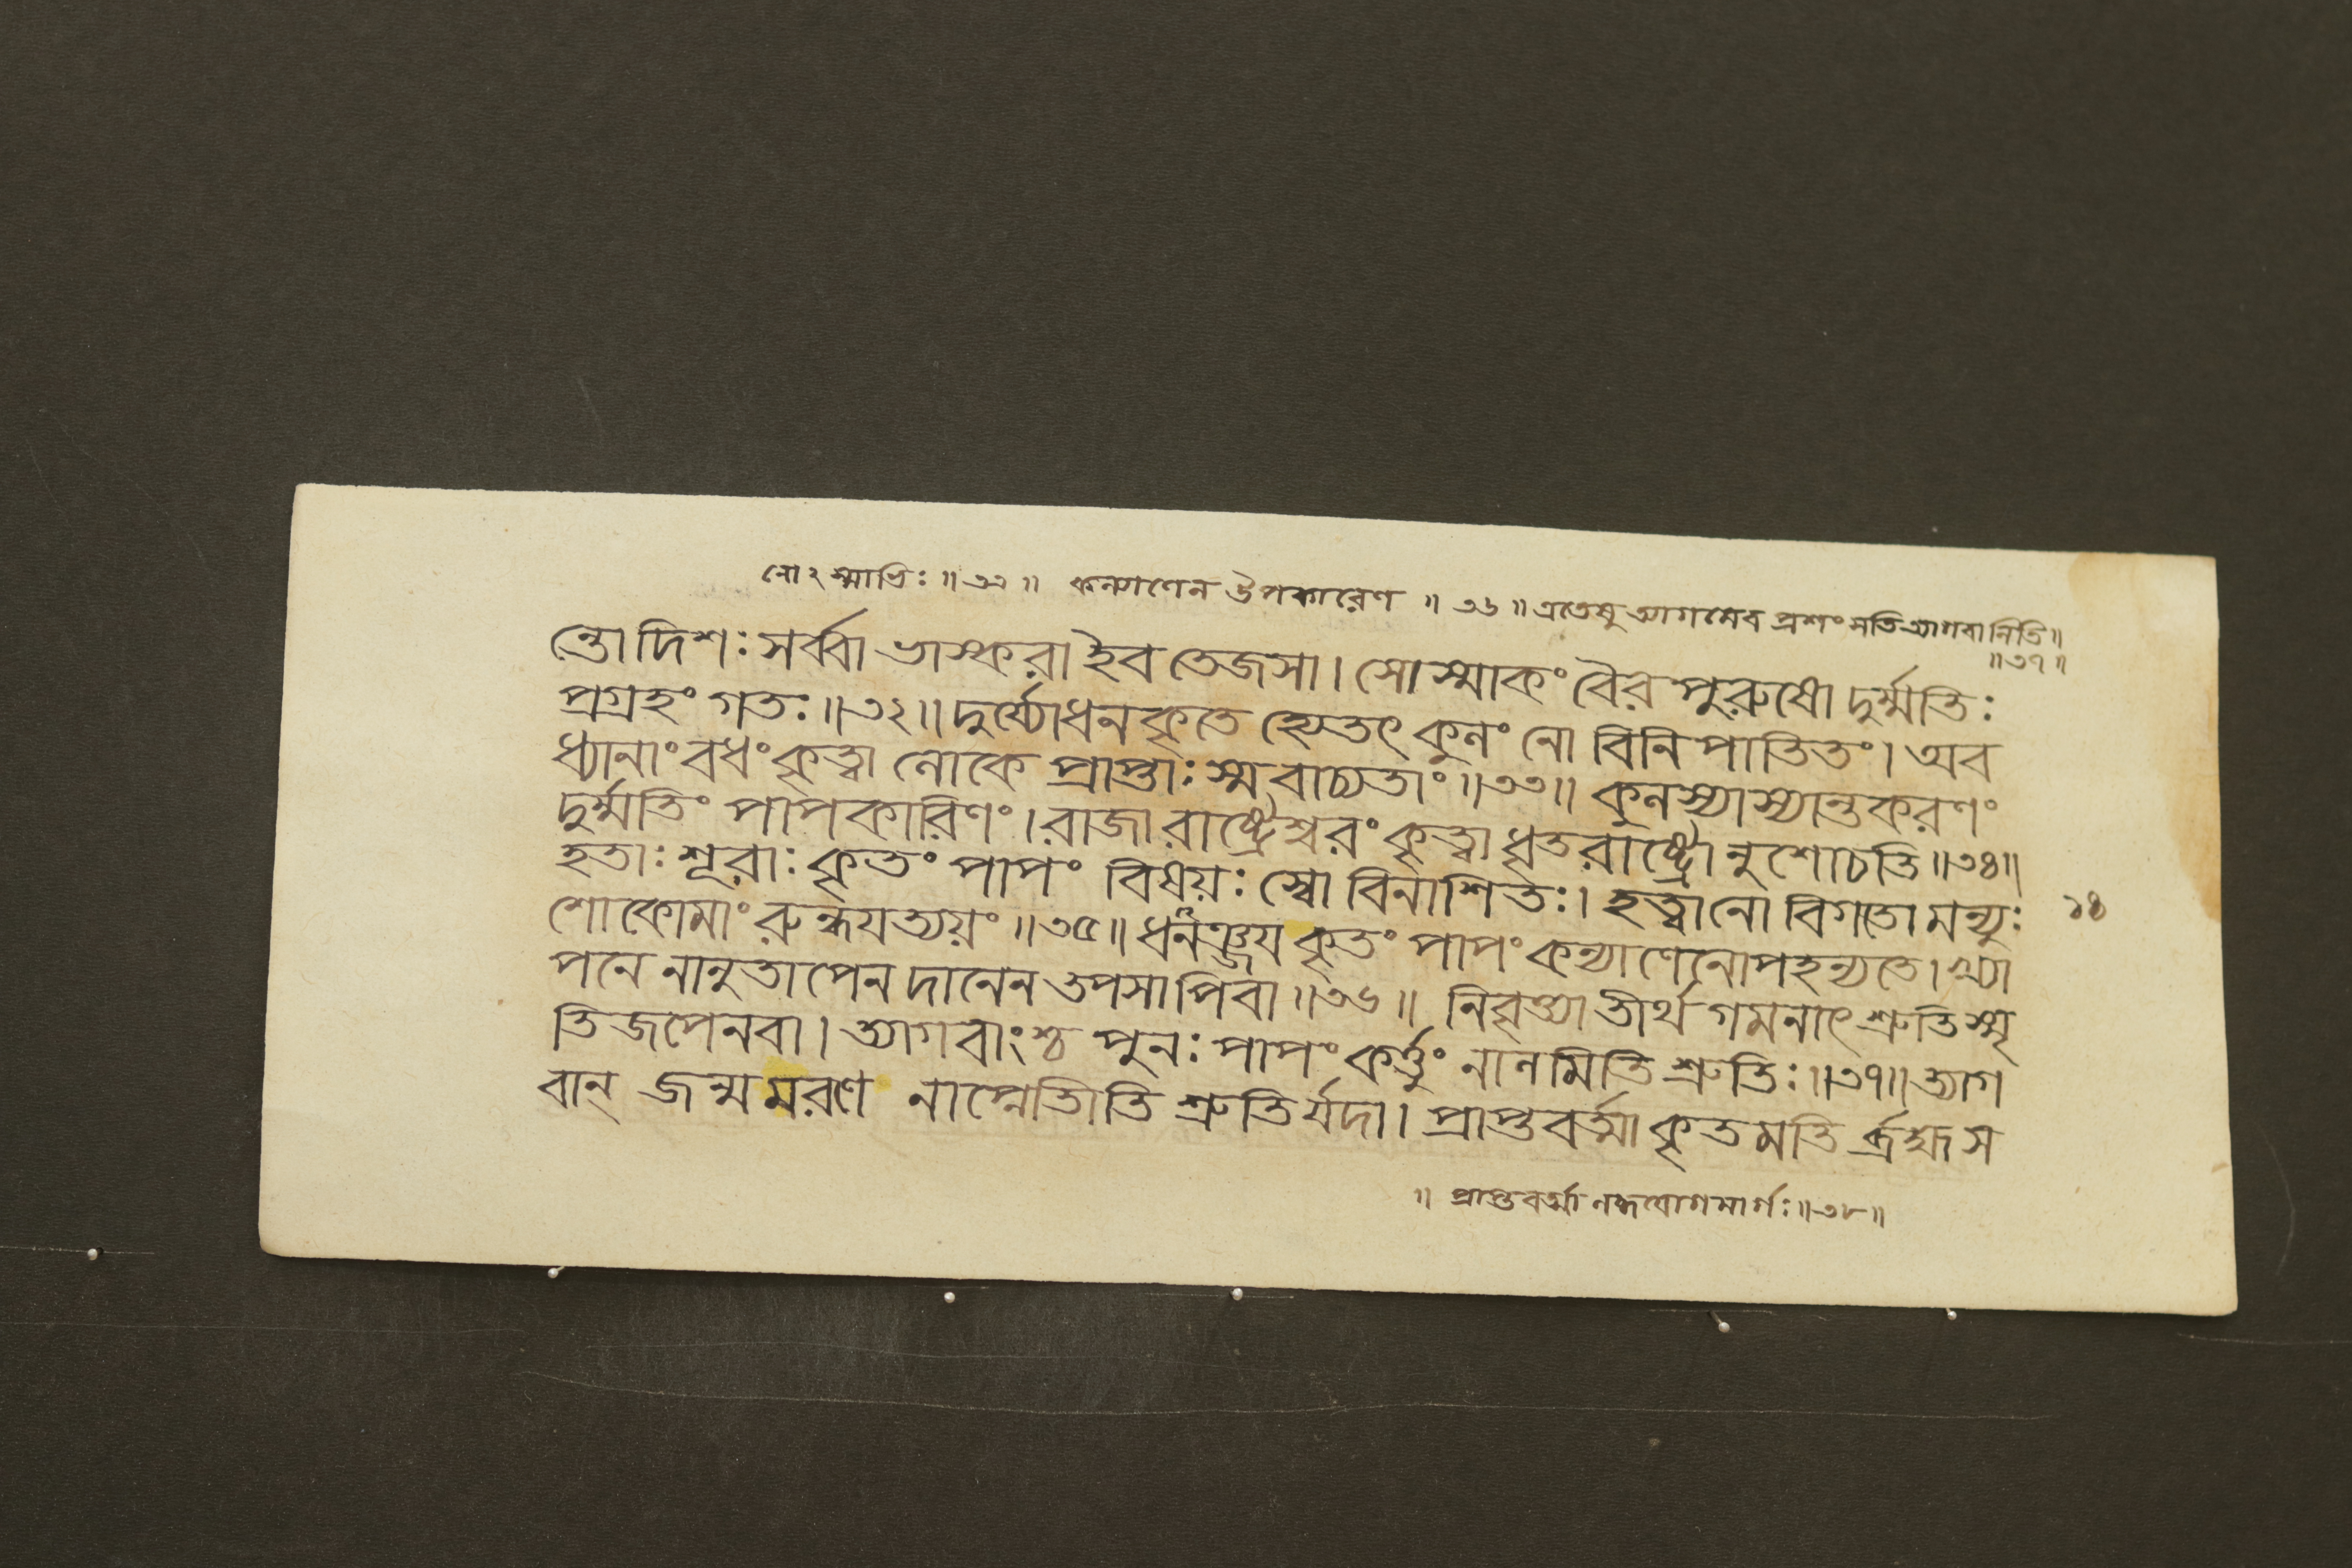 নোঽস্মাভিঃ ॥৩৩॥ কল্যাণেন উপকারেণ ॥৩৬॥ এতেষু ত্যাগমেব প্রশংসতি ত্যাগবানিতি॥
॥৩৭॥
ন্তো দিশঃ সর্ব্বা ভাস্করা ইব তেজসা। সোস্মাকং বৈর পুরুষো দুর্ম্মতিঃ
প্রগ্রহং গতঃ॥৩২॥ দুর্য্যোধনকৃতে হ্যেতৎ কুলং নো বিনিপাতিতং। অব
ধ্যানাং বধং কৃত্বা লোকে প্রাপ্তাঃ স্ম বাচ্যতাং॥৩৩॥ কুলস্যাস্যান্তকরণং
দুর্ম্মতিং পাপকারিণং। রাজা রাষ্ট্রেশ্বরং কৃত্বা ধৃতরাষ্ট্রোনুশোচতি॥৩৪॥
হতাঃ শূরাঃ কৃতং পাপং বিষয়ঃ স্বো বিনাশিতঃ। হত্বা নো বিগতো মন্যুঃ
১৪
শোকোমাং রুন্ধযত্যয়ং॥৩৫॥ ধনঞ্জয কৃতং পাপং কল্যাণেনোপহন্যতে। খ্যা
পনে নানুতাপেন দানেন তপসাপিবা॥৩৬॥ নিবৃত্ত্যা তীর্থগমনাৎ শ্রুতিস্মৃ
তিজপেনবা। ত্যাগবাংশ্চ পুনঃ পাপং কর্ত্তুং নালমিতি শ্রুতিঃ॥৩৭॥ ত্যাগ
বান্ জন্মমরণে নাপ্নোতীতি শ্রুতির্যদা। প্রাপ্তবর্ত্মা কৃতমতি র্ব্রহ্ম স
॥ প্রাপ্তবর্ত্মা লব্ধযোগমার্গঃ॥৩৮॥